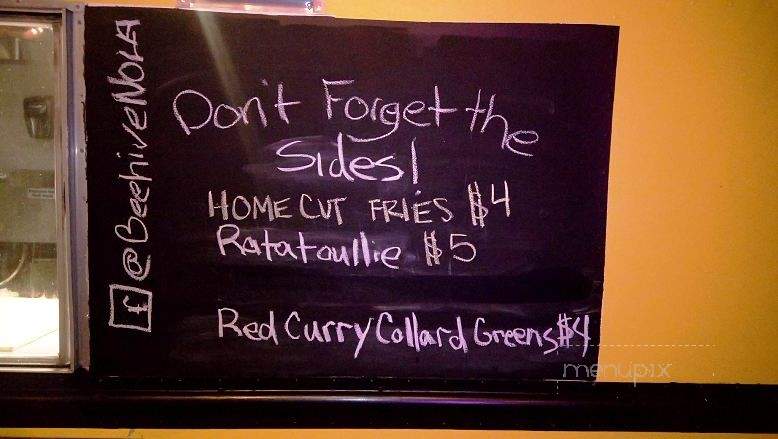 Don't Forget the
Sides!
HOME CUT FRIES $4
Ratatoullie $5
Red Curry Collard Greens $4
f @BeehiveNOLA
menupix